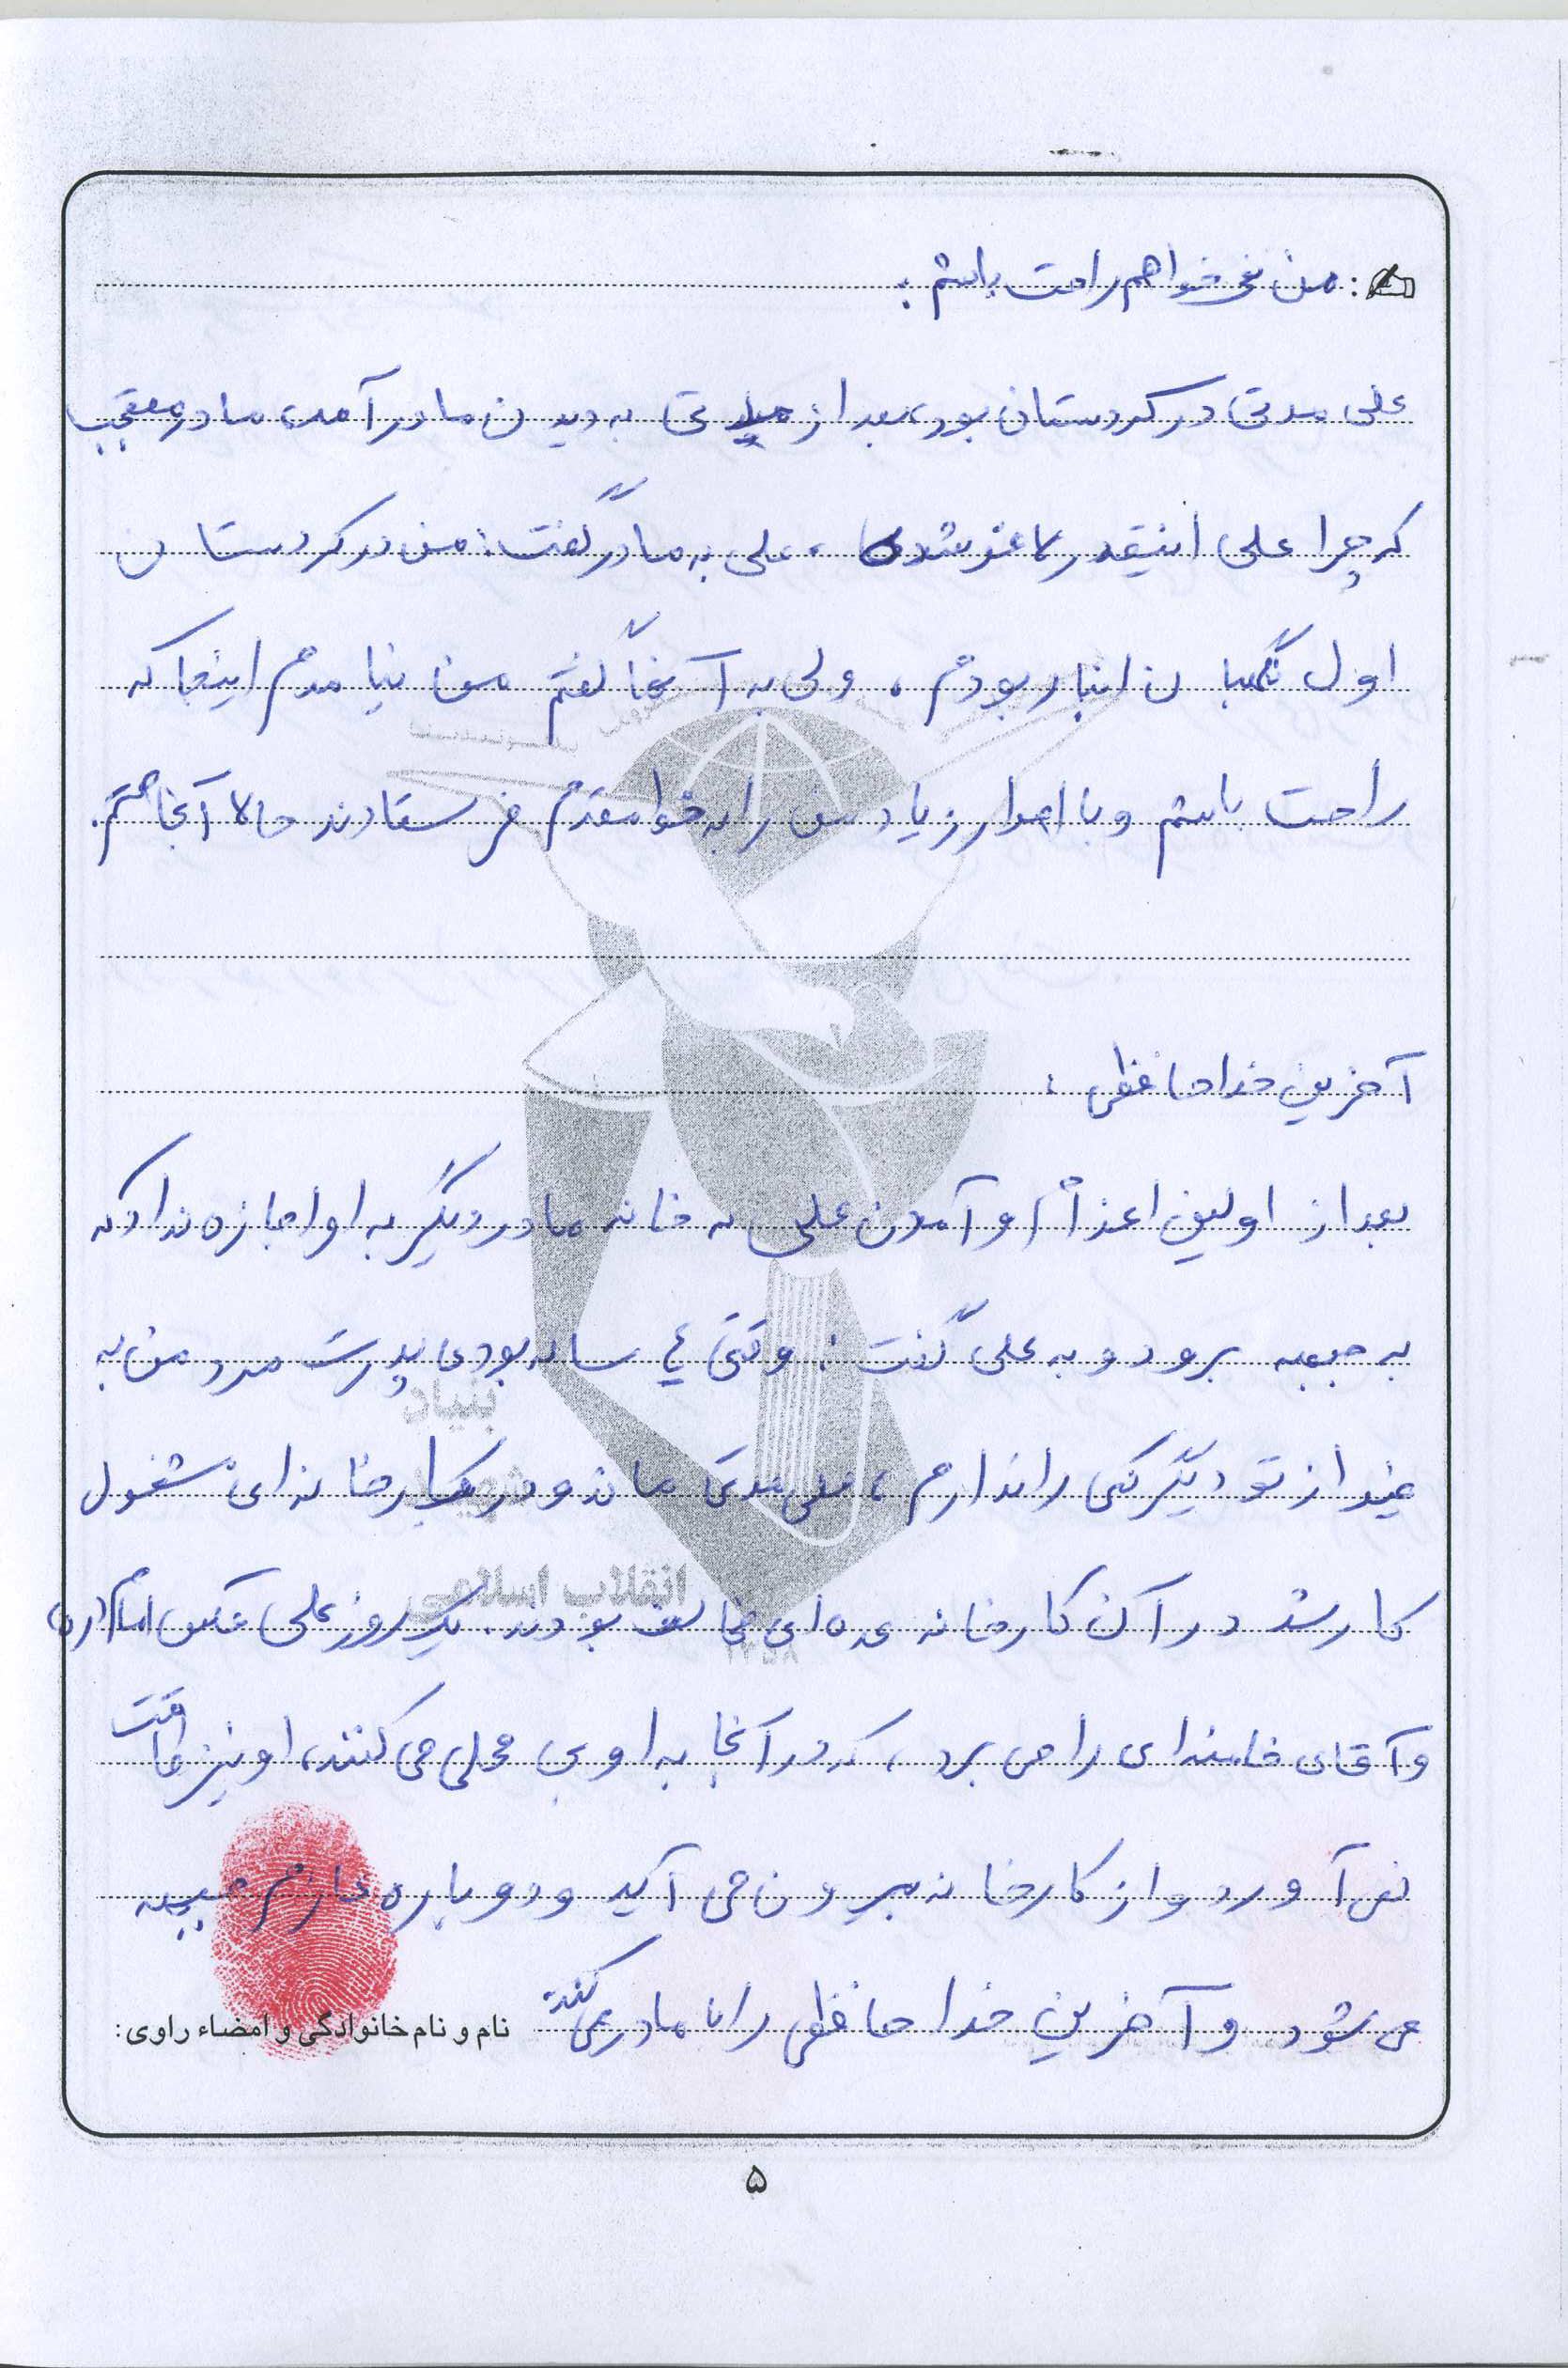 من نمی خواهم راحت باشم :
علی مدتی در کردستان بود، بعد از مدتی به دیدن مادر آمد، مادر متعجب
که چرا علی اینقدر لاغر شدی، علی به مادر گفت: من در کردستان
اول نگهبان انبار بودم، ولی به آنها گفتم من نیامدم اینجا که
راحت باشم و با اصرار زیاد من را به خط مقدم فرستادند حالا آنجا هستم.
آخرین خداحافظی :
بعد از اولین اعزام و آمدن علی به خانه مادر دیگر به او اجازه نداد که
به جبهه برود و به علی گفت : وقتی ٤ ساله بودی پدرت مرد من به
غیر از تو دیگر کسی را ندارم، علی مدتی ماند و در کارخانه ای مشغول
کار شد در آن کارخانه عده ای مخالف بودند. یک روز علی عکس امام (ره)
و آقای خامنه ای را می برد، که در آنجا به او بی محلی می کنند، او نیز طاقت
نمی آورد و از کارخانه بیرون می آید و دوباره عازم جبهه
می شود و آخرین خداحافظی را با مادر می کند.
نام و نام خانوادگی و امضاء راوی:
بنیاد
شهید
انقلاب اسلامی
۱۳۵۸
۵